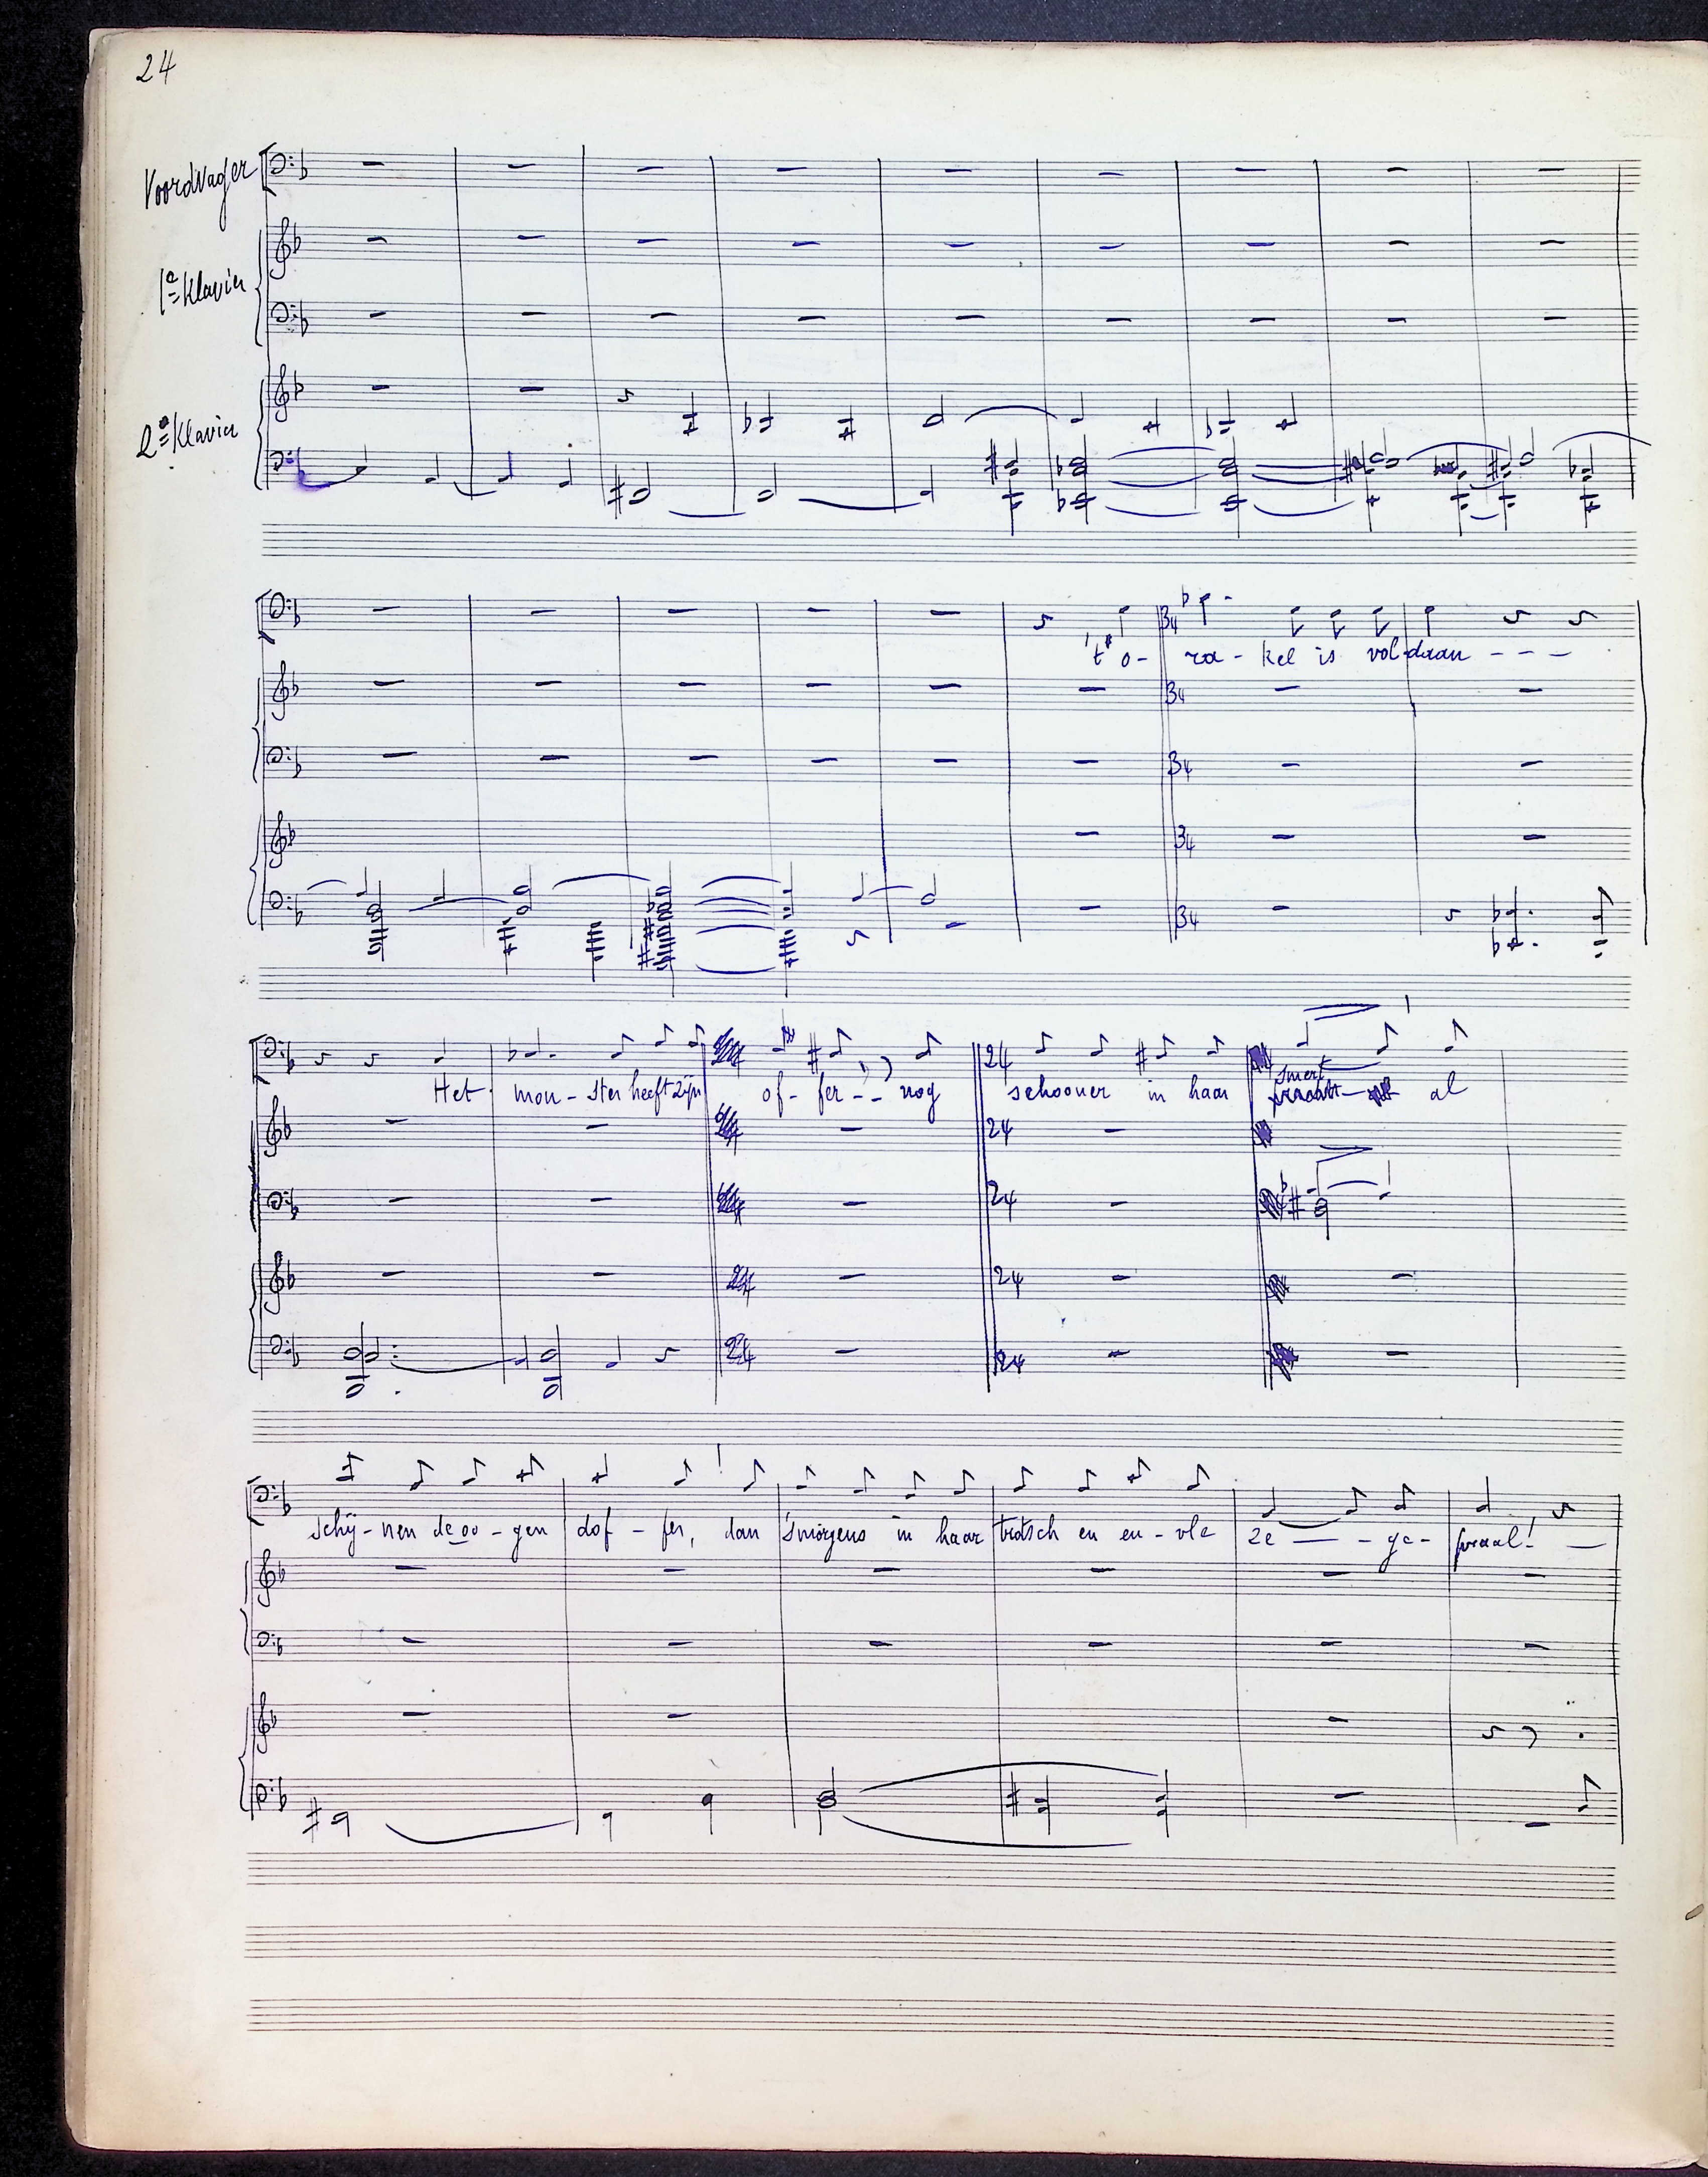 24
Voordrager
1e Klavier
2e Klavier
't o- ra - kel is vol-daan - - -
3 4
3 4
3 4
3 4
3 4
Het mon - ster heeft zijn of - fer - - nog schooner in haar smert al
2 4
2 4
2 4
2 4
2 4
schij - nen de oo - gen dof - fer, dan 's morgens in haar trotsch en eu - vle ze - - ge - praal! -